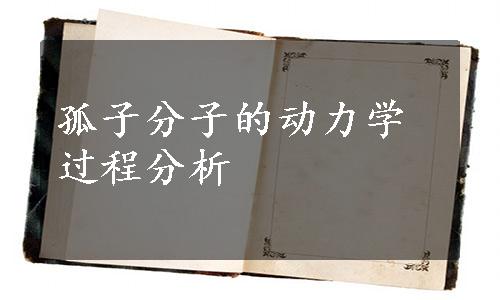 孤子分子的动力学
过程分析